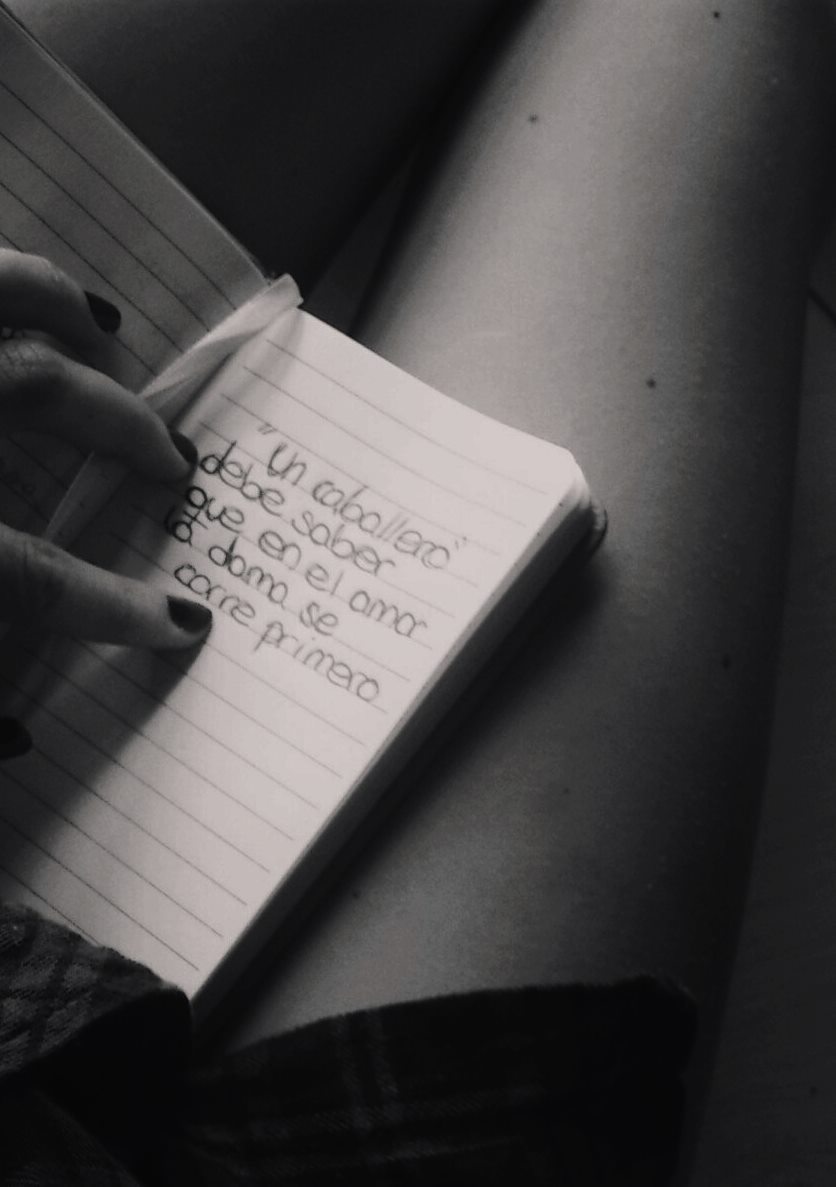 "Un caballero"
debe saber
que en el amor
la dama se
corre primero